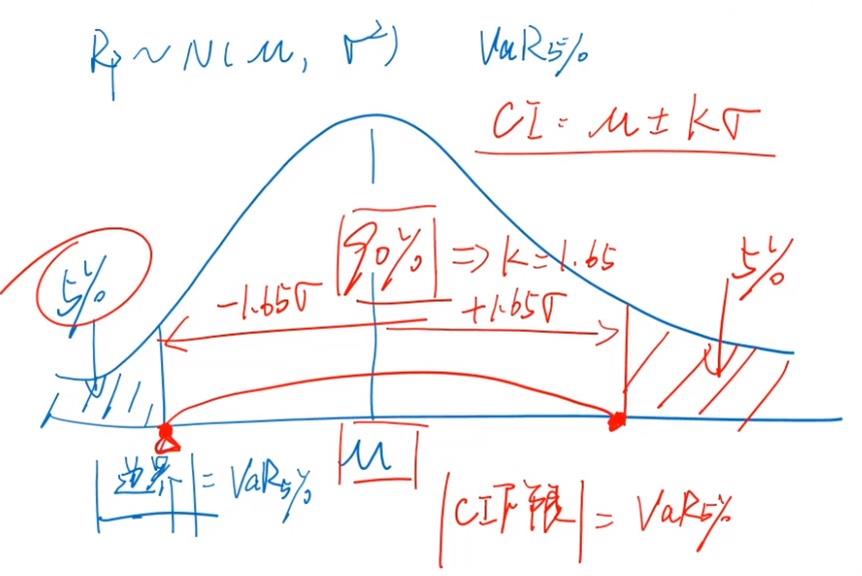 Rp ~ N(μ, σ²)
VaR5%
CI = μ ± kσ
5%
90% ⇒ k=1.65
5%
-1.65σ
+1.65σ
μ
|边界| = VaR5%
|CI下限| = VaR5%